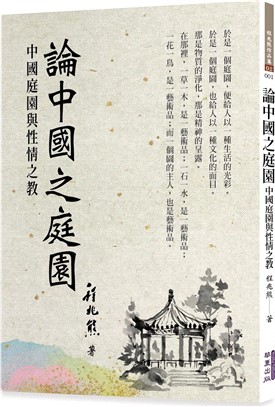 於是一個庭園，便給人以一種生活的光彩，
於是一個庭園，也給人以一種文化的面目。
那是物質的淨化，那是精神的呈露。
在那裡，一草一木，是一藝術品；一石一水，是一藝術品；
一花一鳥，是一藝術品；而一個園的主人，也是藝術品。
論中國之庭園
中國庭園與性情之教
程兆熊 著
程兆熊作品集
001
論中國之庭園
中國庭園與性情之教
程兆熊 著
華夏出版